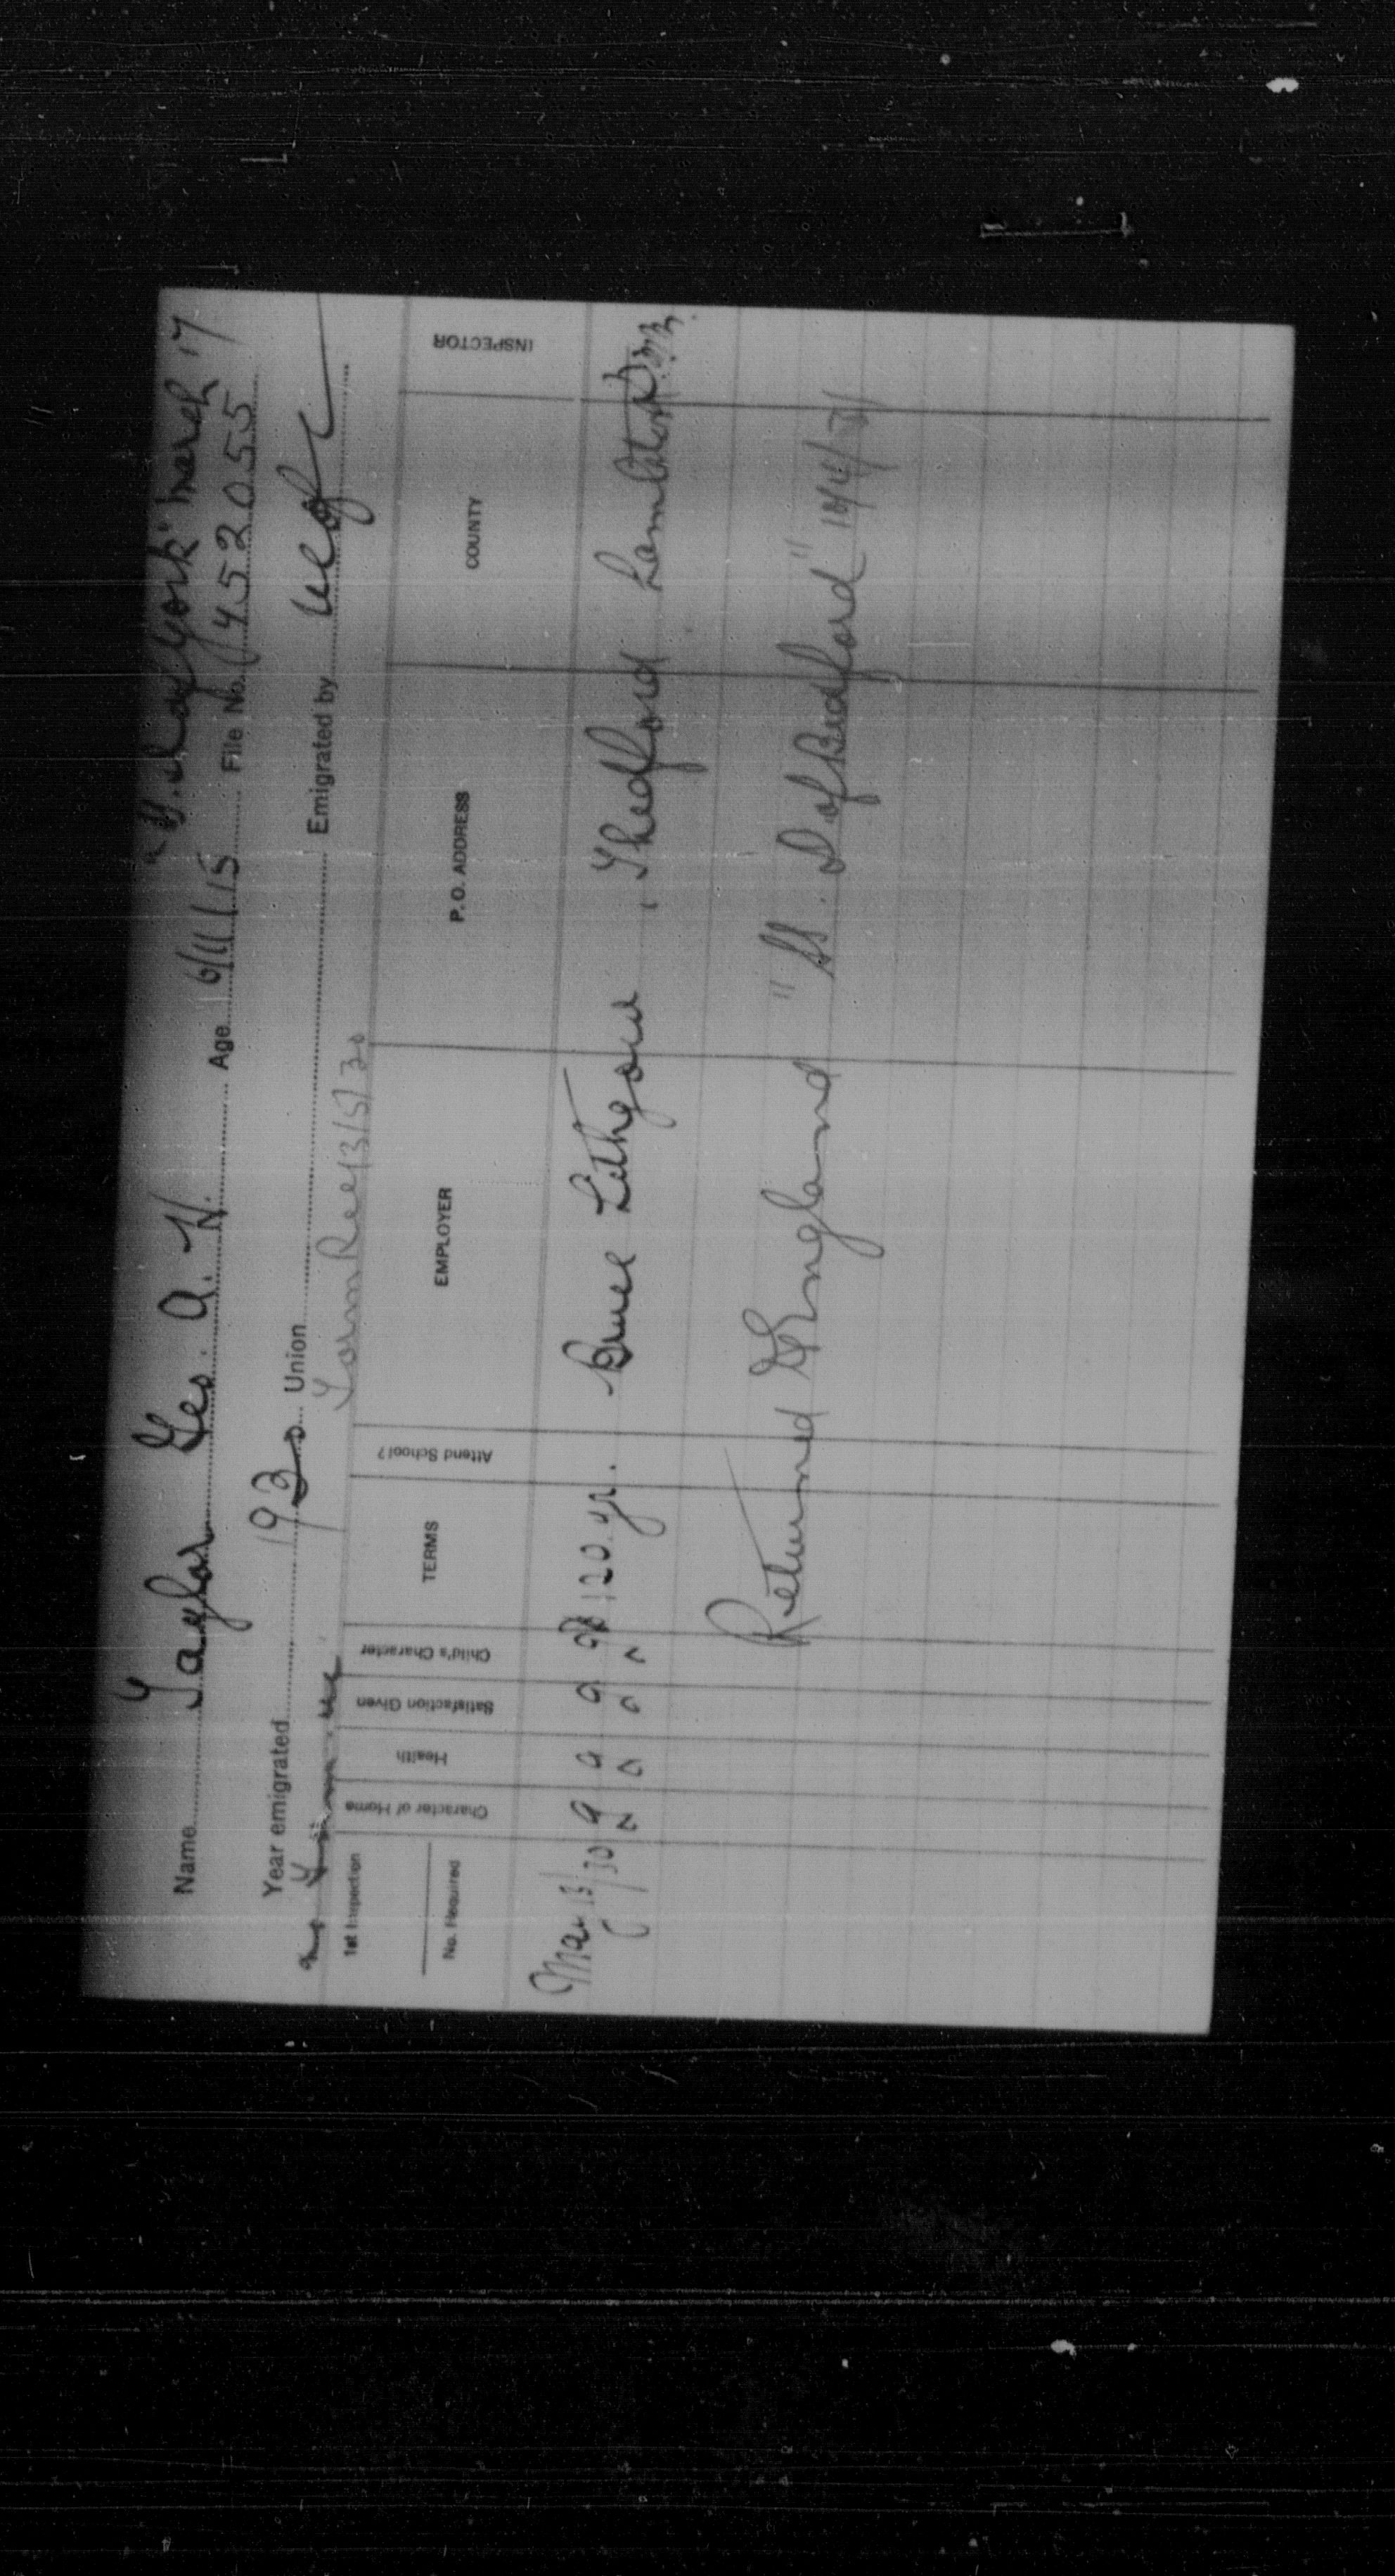 D. of York" March 17
Name Taylor Geo. A. H. Age 6/11/15 File No. 452055
Year emigrated 1930 Union Emigrated by UCofC
Form Rec 13/5/30
1st Inspection
No. Required Character of Home Health Satisfaction Given Child's Character TERMS Attend School? EMPLOYER P. O. ADDRESS COUNTY INSPECTOR
May 13/30 G G G G $120. yr. Bruce Lithgow, Thedford Lambton
Returned England "SS. D of Bedford"